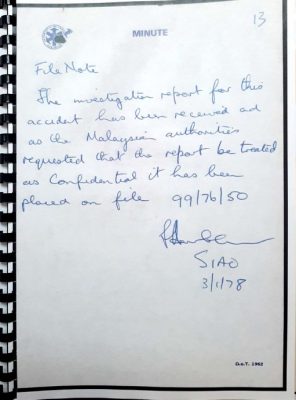 13
MINUTE
File Note
The investigation report for this
accident has been received and
as the Malaysian authorities
requested that the report be treated
as Confidential it has been
placed on file 99/76/50
SIAO
3/1/78
O.S.T. 1962